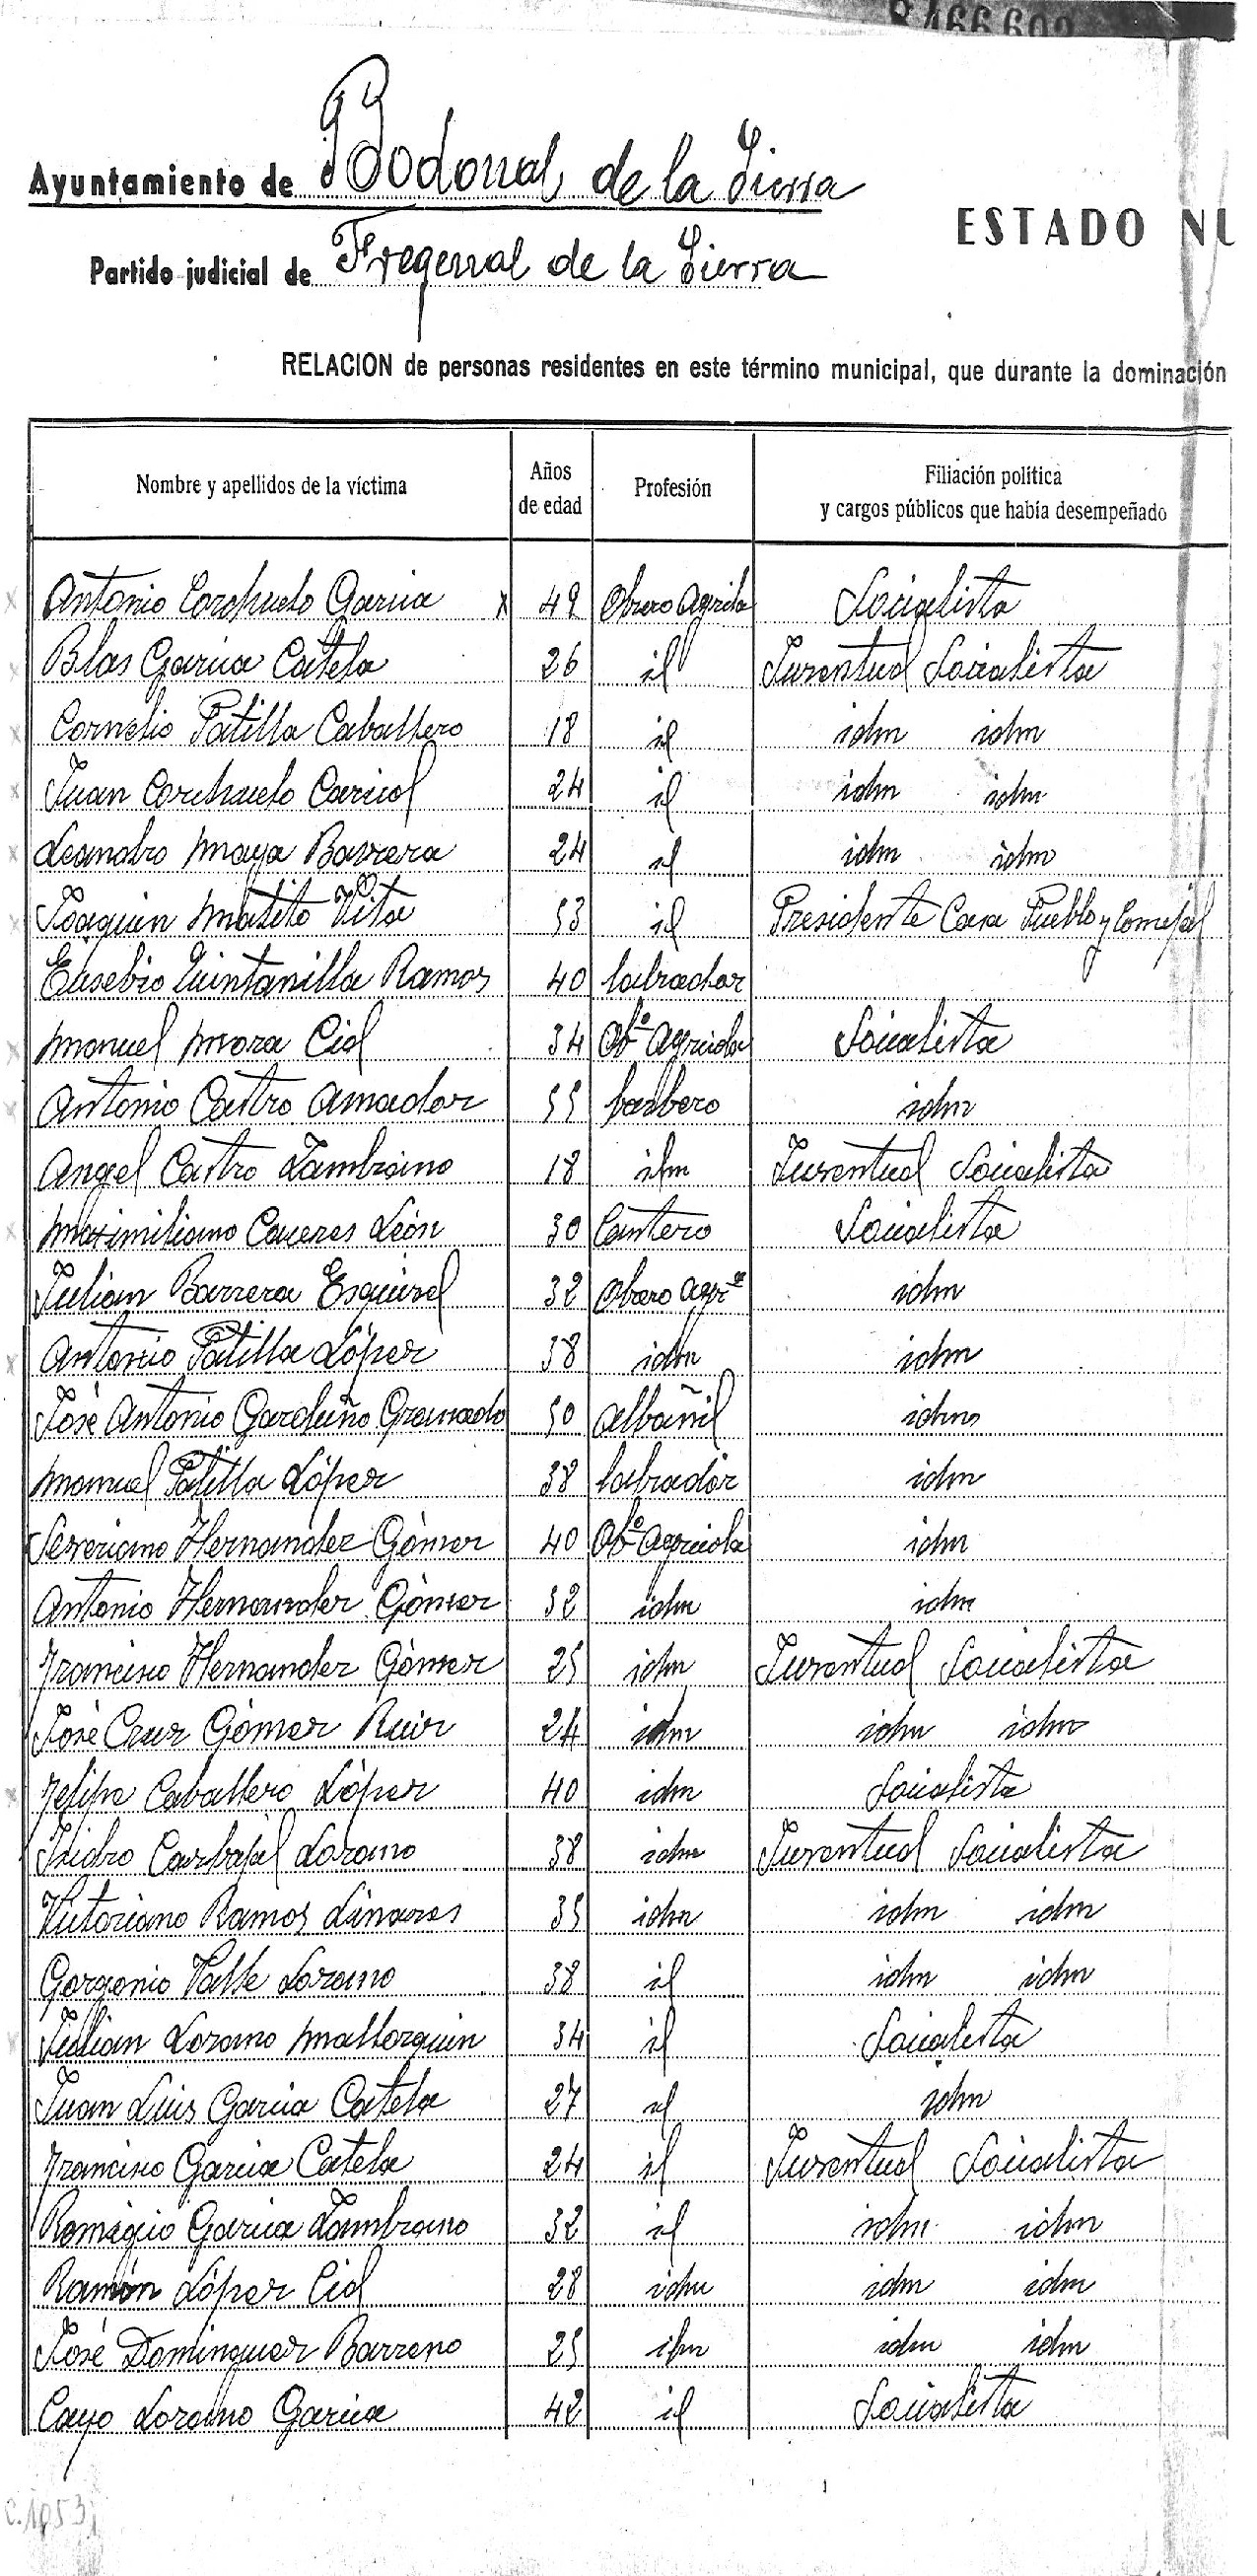 466602
Ayuntamiento de Bodonal de la Sierra
ESTADO NU
Partido judicial de Fregenal de la Sierra
RELACION de personas residentes en este término municipal, que durante la dominación
Nombre y apellidos de la víctima
Años de edad
Profesión
Filiación política y cargos públicos que había desempeñado
Antonio Corchuelo Garcia x 49 Obrero Agricola Socialista
Blas Garcia Catela 26 id Juventud Socialista
Cornelio Patilla Caballero 18 id idm idm
Juan Corchuelo Carriol 24 id idm idm
Leandro Maya Barrera 24 id idm idm
Joaquin Matito Vita 53 id Presidente Casa Pueblo y Concejal
Eusebio Quintanilla Ramos 40 labrador
Manuel Mora Cid 34 Obº Agricola Socialista
Antonio Castro Amador 55 barbero idm
Angel Castro Zambrano 18 idm Juventud Socialista
Maximiliano Caceres León 30 Cantero Socialista
Julian Barrera Esquivel 32 Obrero Agrª idm
Antonio Patilla López 38 idm idm
José Antonio Garduño Granado 50 Albañil idm
Manuel Patilla López 38 labrador idm
Severiano Hernandez Gómez 40 Obº Agricola idm
Antonio Hernandez Gómez 32 idm idm
Francisco Hernandez Gómez 25 idm Juventud Socialista
José Cruz Gómez Ruiz 24 idm idm idm
Felipe Caballero López 40 idm Socialista
Isidro Carbajal Lozano 38 idm Juventud Socialista
Victoriano Ramos Linares 35 idm idm idm
Gorgonio Valle Lozano 38 id idm idm
Julian Lozano Mallorquin 34 id Socialista
Juan Luis Garcia Catela 27 id idm
Francisco Garcia Catela 24 id Juventud Socialista
Romigio Garcia Zambrano 32 id idm idm
Ramón López Cid 28 idm idm idm
José Dominguez Barreno 25 idm idm idm
Cayo Lozano Garcia 42 id Socialista
C.1053